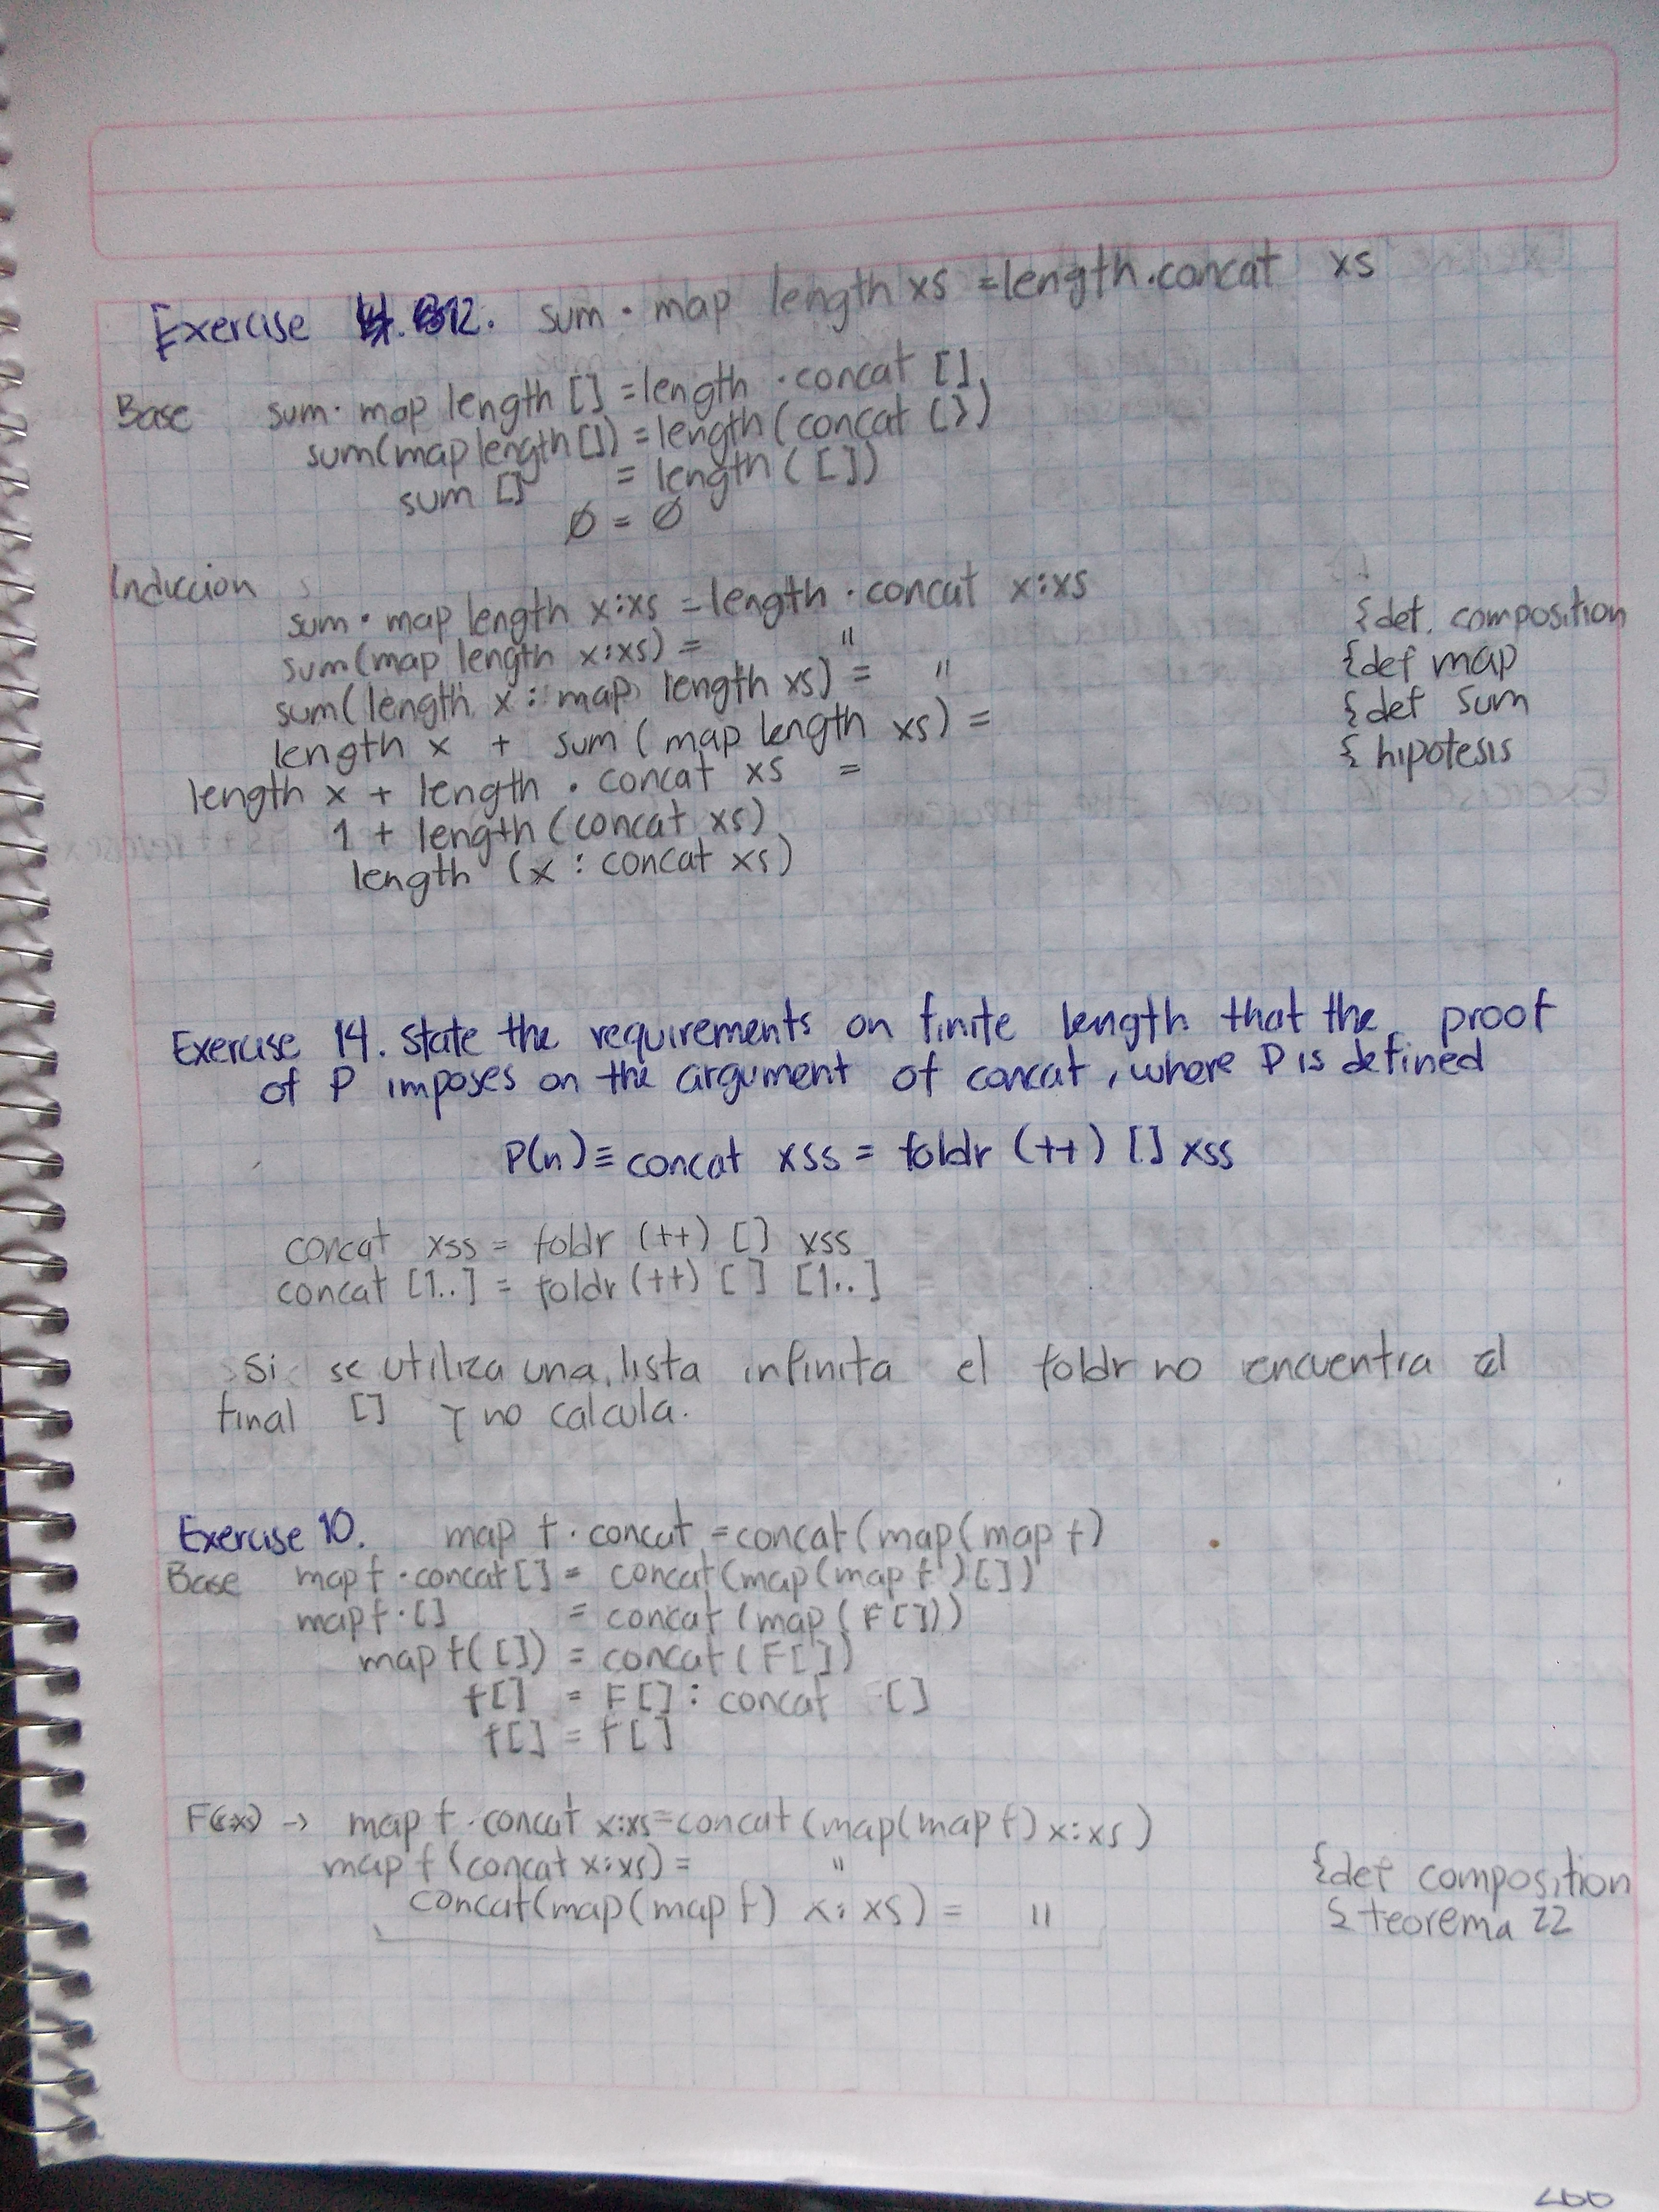 Exercise 12. sum · map length xs = length · concat xs
Base sum · map length [] = length · concat []
sum(map length []) = length(concat [])
sum [] = length ([])
Ø = Ø
Induccion
sum · map length x:xs = length · concat x:xs {def. composition
sum(map length x:xs) = " {def map
sum(length x : map length xs) = " {def sum
length x + sum (map length xs) = { hipotesis
length x + length · concat xs =
1 + length(concat xs)
length (x : concat xs)
Exercise 14. State the requirements on finite length that the proof
of P imposes on the argument of concat, where P is defined
P(n) ≡ concat xss = foldr (++) [] xss
concat xss = foldr (++) [] xss
concat [1..] = foldr (++) [] [1..]
Si se utiliza una lista infinita el foldr no encuentra el
final [] y no calcula.
Exercise 10. map f · concat = concat(map(map f)
Base map f · concat [] = concat(map(map f) [])
map f · [] = concat (map (F[]))
map f([]) = concat(F[])
f[] = F[] : concat []
f[] = f[]
F(x) → map f · concat x:xs = concat(map(map f) x:xs)
map f (concat x:xs) = " {def composition
concat(map(map f) x:xs) = " { teorema 22